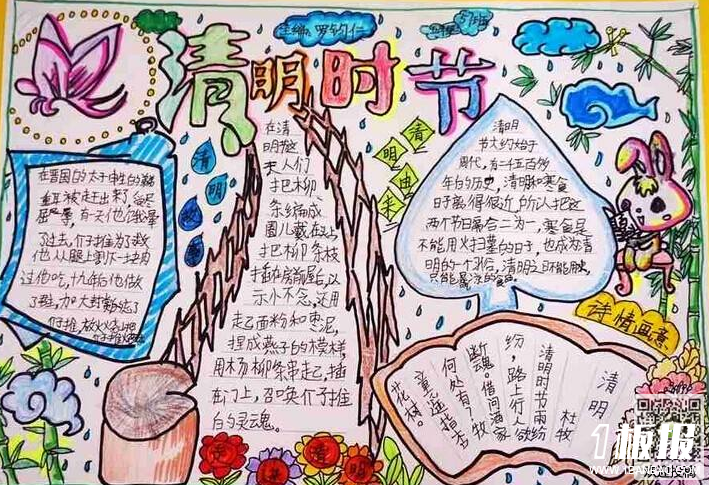 主编:罗钧仁
5班
清明时节
清明故
清明由来
在晋国的太子申生的弟弟
重耳被赶出来了,
了过去,介子推为了救
他从腿上割下一块肉
过他吃,十九年后他做
在清
明那这
天人们
把柳
条编成
圈儿戴在头上
把柳条枝
插在房前屋后,以
示小不念,还用
起面粉和枣泥,
捏成燕子的模样,
用杨柳条串起,插
在门上,召唤介子推
的灵魂。
清明
节大约始于
周代,有二千五百多
年的历史,清明和寒食
日子离得很近,所以把这
两个节日属合二为一,寒食是
不能用火扫墓的日子,也成为清
明的一个习俗,清明之日不能用火,
只能属凉的食品
诗情画意
清明
杜牧
清明时节雨纷
纷,路上行人欲
断魂。借问酒家
何处有?牧
童遥指杏
花村。
走进清明
1板报
WWW.1BANBAO.COM
欢迎投稿